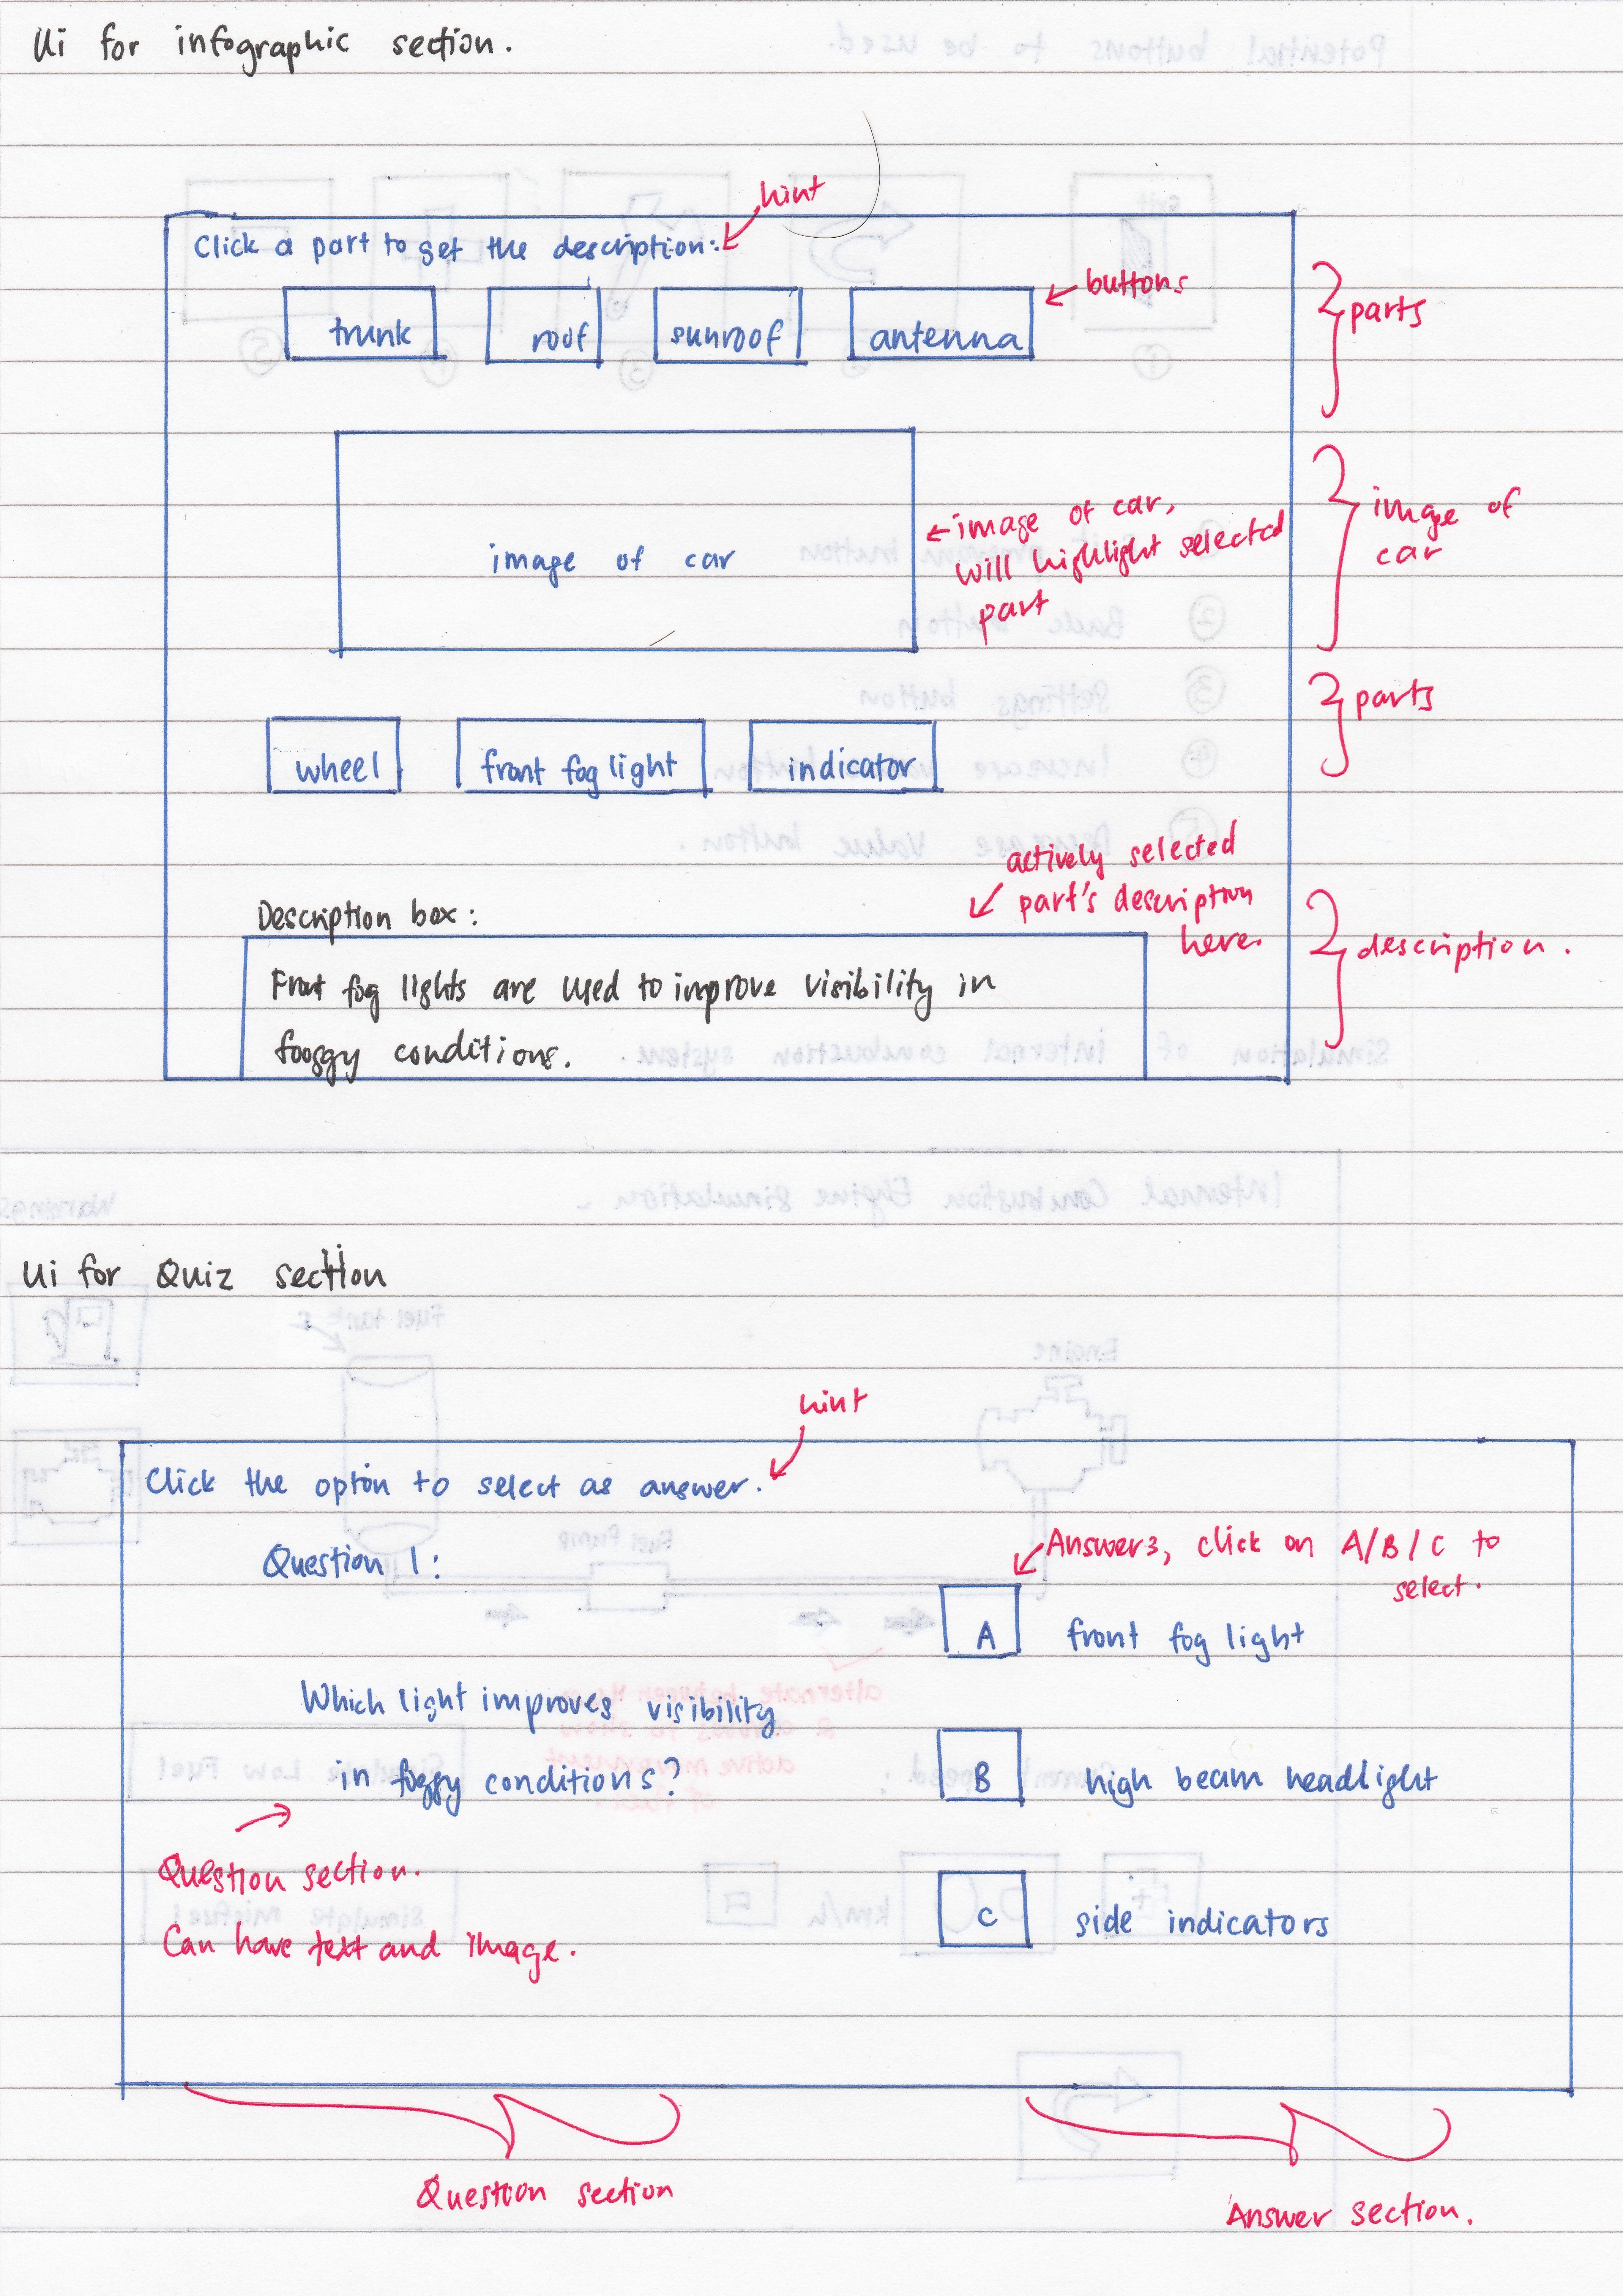 Ui for infographic section.
hint
Click a part to get the description:
buttons
parts
trunk
roof
sunroof
antenna
image of car
image of car,
will highlight selected
part
image of
car
parts
wheel
front fog light
indicator
actively selected
part's description
here.
Description box:
description.
Front fog lights are used to improve visibility in
fooggy conditions.
Ui for Quiz section
hint
Click the option to select as answer.
Answers, click on A/B/C to
select.
Question 1:
A
front fog light
Which light improves visibility
in foggy conditions?
B
high beam headlight
Question section.
Can have text and image.
C
side indicators
Question section
Answer section.